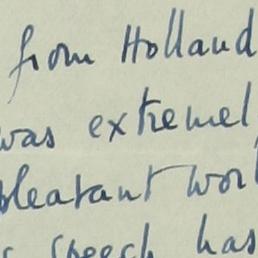 from Holland
was extremel
pleasant wor
speech has